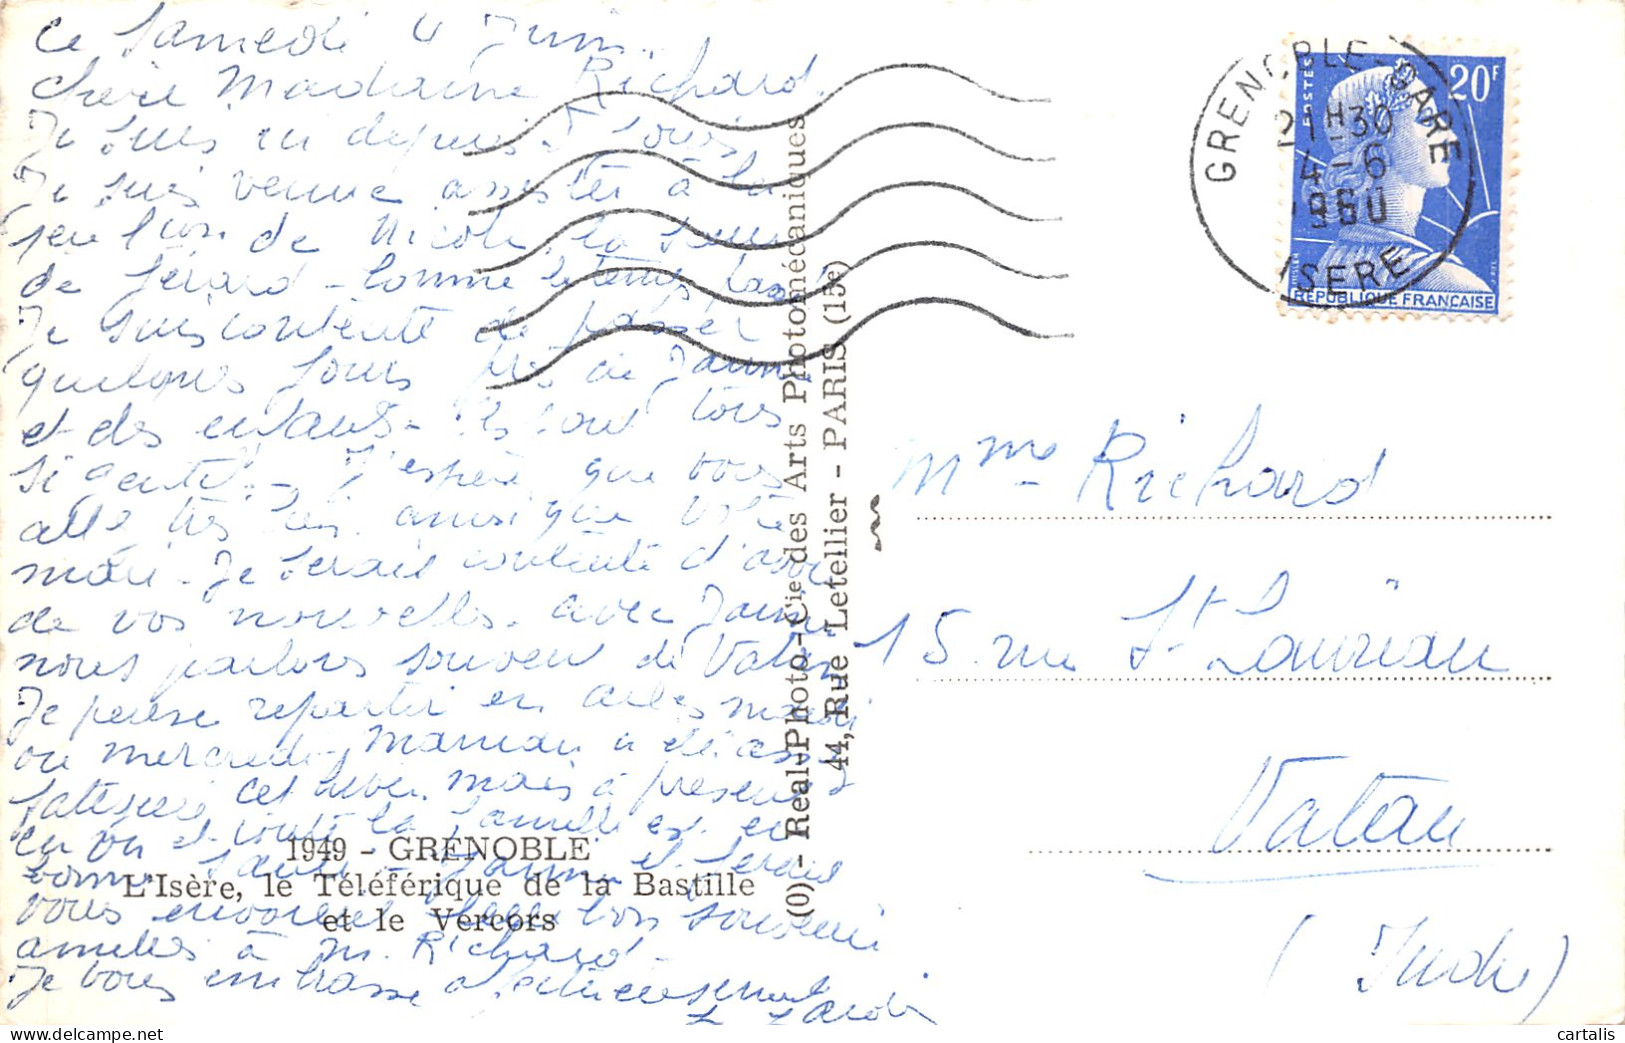 Ce Samedi 4 Juin.
Chère Madame Richard.
Je suis ici depuis 5 jours
Je suis venue assister à la
de Nicole, la sœur
de Gérard - Comme le temps passe
Je suis contente de passer
quelques jours près de
et des enfants - ils sont tous
si gentils - J'espère que vous
allez très bien ainsi que votre
mari - Je serais contente d'avoir
de vos nouvelles. avec
nous parlons souvent de Vatan
Je pense repartir en Arles mardi
ou mercredi, Maman a été assez
fatiguée cet hiver. mais à présent
ça va et toute la famille est en
bonne santé - et Gérard
vous envoient leur bon souvenir
amitiés à M. Richard -
Je vous embrasse affectueusement
1949 - GRENOBLE
L'Isère, le Téléférique de la Bastille
et le Vercors
(O) - Real-Photo - Cie des Arts Photomécaniques
44, Rue Letellier - PARIS (15e)
GRENOBLE-GARE
21H30
4-6
1960
ISERE
POSTES
20F
REPUBLIQUE FRANÇAISE
Mme Richard
15 rue St Laurian
Vatan
(Indre)
cartalis